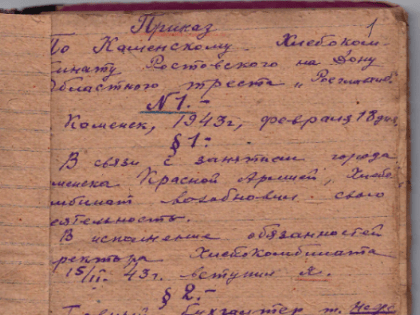 Приказ 1
По Каменскому Хлебоком-
бинату Ростовского на Дону
Областного треста „Росглавхлеб"
№ 1.-
Каменск, 1943г, февраля 18 дня
§ 1-
В связи с занятием города
менска Красной Армией, Хлебо
мбинат возобновил свою
еятельность.
В исполнение обязанностей
ректора Хлебокомбината
15/II. 43г. вступил я.
§ 2.-
бухгалтер т.